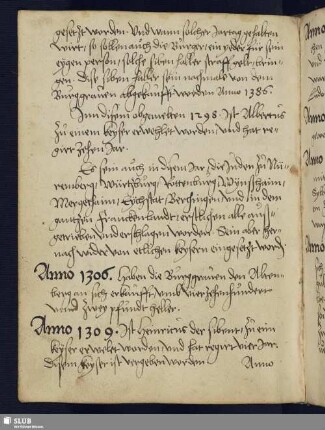 gesetzt worden. Und wann solcher Jartag gehalten
wirt, so sollen auch die Burger, ein yeder für sein
eygen person, solche siben haller straff gelt
gen. Dise siben haller sein nochmals von dem
Burggraven abgekaufft worden Anno 1386.
Inn disem obgemelten 1298. Ist Albertus
zu einem keyser erwehlet worden, und hat re-
girt zehen Jar.
Es sein auch in disem Jar die Juden zu Nu-
renberg, Würtzburg, Rottenburg, Wynßhaim,
Mergethaim, Eichstat, Berchingen und in dem
gantzen Franckenlandt, erstlichen alle auß-
getriben und erschlagen worden. Sein aber her-
nach wider von etlichen keysern eingesetzt word
Anno 1306. Haben die Burggraven den Alten-
berg an sich erkaufft, umb vierzehenhundert
und zwey pfundt heller.
Anno 1309. Ist Heinricus der sibent zu eim
keyser erwelet worden, und hat regirt vier Jar.
Disem keyser ist vergeben worden.
Anno
SLUB